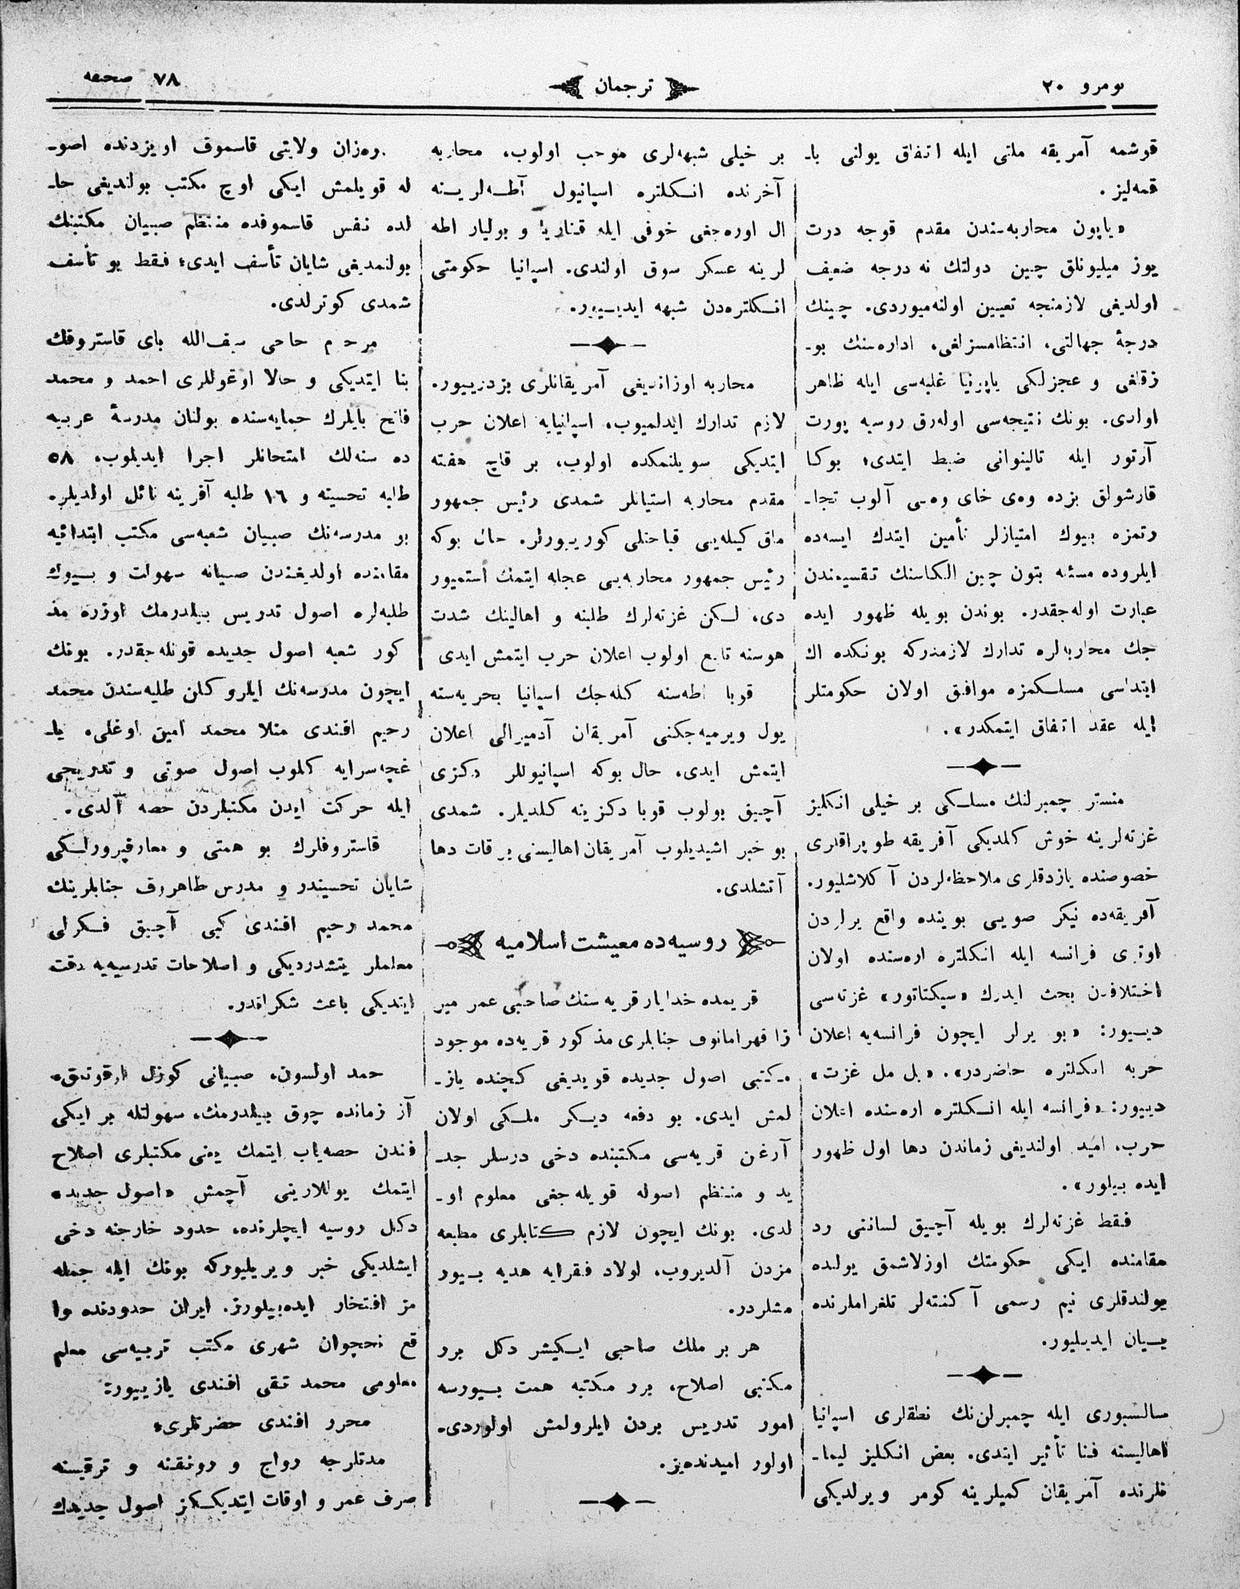 نومرو ٢٠
ترجمان
٧٨ صحيفه
قوشمه آمريقه ملتى ايله اتفاق يولنى با-
قمه‌ليز.
«ياپون محاربه‌سندن مقدم قوجه درت
يوز ميليونلق چين دولتك نه درجه ضعيف
اولديغى لازمنجه تعيين اولنه‌ميوردى. چينك
درجهٔ جهالتى، انتظامسزلغى، اداره‌سنك بو-
زقلغى و عجزلكى ياپونيا غلبه‌سى ايله ظاهر
اولدى. بونك نتيجه‌سى اوله‌رق روسيه پورت
آرتور ايله تالينوانى ضبط ايتدى؛ بوكا
قارشولق بزده وه‌ى خاى وه‌يى آلوب تجا-
رتمزه بيوك امتيازلر تأمين ايتدك ايسه‌ده
ايلروده مسئله بتون چين الكاسنك تقسيمندن
عبارت اوله‌جقدر. بوندن بويله ظهور ايده
جك محاربه‌لره تدارك لازمدركه بونكده اك
ابتداسى مسلكمزه موافق اولان حكومتلر
ايله عقد اتفاق ايتمكدر».
منستر چمبرلنك مسلكى بر خيلى انكليز
غزته‌لرينه خوش كلمديكى آفريقه طوپراقلرى
خصوصنده يازدقلرى ملاحظه‌لردن آكلاشليور.
آفريقه‌ده نيكر صويى بوينده واقع يرلردن
اوترى فرانسه ايله انكلتره اره‌سنده اولان
اختلافدن بحث ايدرك «سپكتاتور» غزته‌سى
ديييور: «بو يرلر ايچون فرانسه‌يه اعلان
حربه انكلتره حاضردر». «پل مل غزت»
ديييور: «فرانسه ايله انكلتره اره‌سنده اعلان
حرب، اميد اولنديغى زماندن دها اول ظهور
ايده بيلور».
فقط غزته‌لرك بويله آچيق لساننى رد
مقامنده ايكى حكومتك اوزلاشمق يولنده
بولندقلرى نيم رسمى آكنته‌لر تلغرافلرنده
بيان ايديليور.
سالسبورى ايله چمبرلن‌نك نطقلرى اسپانيا
اهاليسنه فنا تأثير ايتدى. بعض انكليز ليما-
نلرنده آمريقان كميلرينه كومر ويرلديكى
بر خيلى شبهه‌لرى موجب اولوب، محاربه
آخرنده انكلتره اسپانيول آطه‌لرينه
ال اوره‌جغى خوفى ايله قناريا و بوليار اطه
لرينه عسكر سوق اولندى. اسپانيا حكومتى
انكلتره‌دن شبهه ايدييور.
محاربه اوزانديغى آمريقانلرى بزدرييور.
لازم تدارك ايدلميوب، اسپانيايه اعلان حرب
ايتديكى سويلنمكده اولوب، بر قاچ هفته
مقدم محاربه استيانلر شمدى رئيس جمهور
ماق كينله‌يى قباحتلى كورييورلر. حال بوكه
رئيس جمهور محاربه‌يى عجله ايتمك استميور
دى، لكن غزته‌لرك طلبنه و اهالينك شدت
هوسنه تابع اولوب اعلان حرب ايتمش ايدى
قوبا اطه‌سنه كله‌جك اسپانيا بحريه‌سنه
يول ويرميه‌جكنى آمريقان آدميرالى اعلان
ايتمش ايدى، حال بوكه اسپانيوللر دكزى
آچيق بولوب قوبا دكزينه كلديلر. شمدى
بو خبر اشيديلوب آمريقان اهاليسنى بر قات دها
آتشلدى.
روسيه‌ده معيشت اسلاميه
قريمده خدايار قريه‌سنك صاحبى عمر مير
زا قهرامانوف جنابلرى مذكور قريه‌ده موجود
مكتبى اصول جديده قويديغى كچنده ياز-
لمش ايدى. بو دفعه ديكر ملكى اولان
آرغن قريه‌سى مكتبنده دخى درسلر جد-
يد و منتظم اصوله قويله‌جغى معلوم او-
لدى. بونك ايچون لازم كتابلرى مطبعه
مزدن آلديروب، اولاد فقرايه هديه بيور
مشلردر.
هر بر ملك صاحبى ايكيشر دكل برر
مكتبى اصلاح، برر مكتبه همت بيورسه
امور تدريس بردن ايلرولمش اولوردى.
اولور اميدنده‌يز.
ره‌زان ولايتى قاسموف اويزدنده اصو-
له قويلمش ايكى اوچ مكتب بولنديغى حا-
لده نفس قاسموفده منتظم صبيان مكتبنك
بولنمديغى شايان تأسف ايدى؛ فقط بو تأسف
شمدى كوترلدى.
مرحوم حاجى سيف‌الله باى قاستروفك
بنا ايتديكى و حالا اوغوللرى احمد و محمد
فاتح بايلرك حمايه‌سنده بولنان مدرسهٔ عربيه
ده سنه‌لك امتحانلر اجرا ايديلوب، ٥٨
طلبه تحسينه و ١٦ طلبه آفرينه نائل اولديلر.
بو مدرسه‌نك صبيان شعبه‌سى مكتب ابتدائيه
مقامنده اولديغندن صبيانه سهولت و بيوك
طلبه‌لره اصول تدريس بيلدرمك اوزره مذ
كور شعبه اصول جديده قونله‌جقدر. بونك
ايچون مدرسه‌نك ايلرو كلن طلبه‌سندن محمد
رحيم افندى منلا محمد امين اوغلى، با-
غچه‌سرايه كلوب اصول صوتى و تدريجى
ايله حركت ايدن مكتبلردن حصه آلدى.
قاستروفلرك بو همتى و معارفپرورلكى
شايان تحسيندر و مدرس طاهروف جنابلرينك
محمد رحيم افندى كبى آچيق فكرلى
معلملر يتشدرديكى و اصلاحات تدرسيه‌يه دقت
ايتديكى باعث شكراندر.
حمد اولسون، صبيانى كوزل اوقوتمق،
آز زمانده چوق بيلدرمك، سهولتله بر ايكى
فندن حصه‌ياب ايتمك يعنى مكتبلرى اصلاح
ايتمك يوللارينى آچمش «اصول جديد»
دكل روسيه ايچلرنده، حدود خارجنه دخى
ايشلديكى خبر ويريليوركه بونك ايله جمله
مز افتخار ايده‌بيلورز. ايران حدودنده وا
قع نخچوان شهرى مكتب تربيه‌سى معلم
معلومى محمد تقى افندى يازييور:
محرر افندى حضرتلرى؛
مدتلرجه رواج و رونقنه و ترقيسنه
صرف عمر و اوقات ايتديككز اصول جديدك